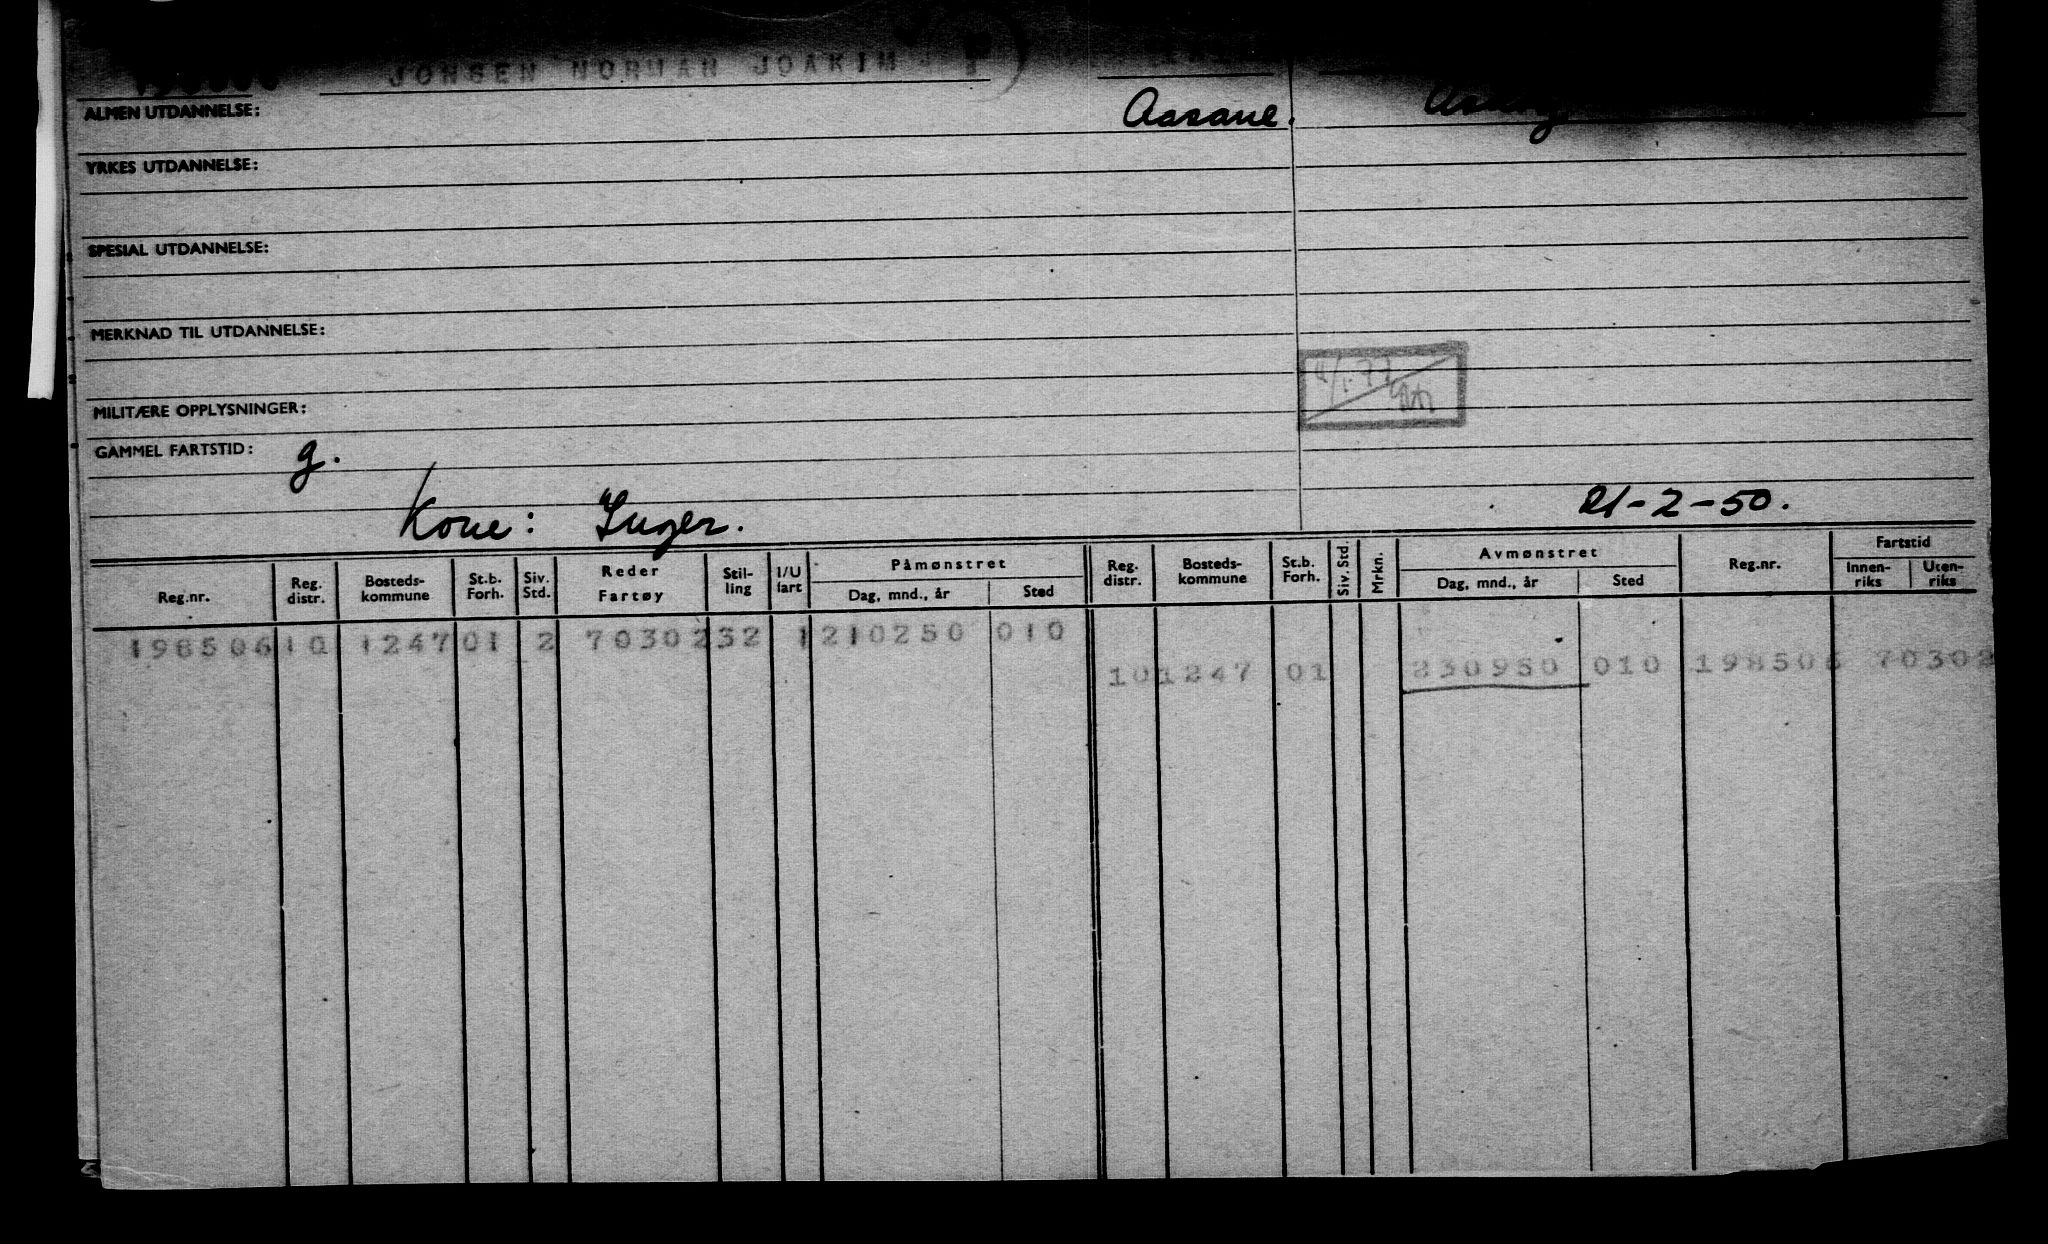 JONSEN NORMAN JOAKIM
ALMEN UTDANNELSE:
Aasane.
YRKES UTDANNELSE:
SPESIAL UTDANNELSE:
MERKNAD TIL UTDANNELSE:
MILITÆRE OPPLYSNINGER:
GAMMEL FARTSTID: g.
Kone: Inger. 21-2-50.
Reg.nr. Reg. distr. Bosteds-kommune St.b. Forh. Siv. Std. Reder Fartøy Stil-ling I/U fart Påmønstret Dag, mnd., år Sted Reg. distr. Bosteds-kommune St.b. Forh. Siv. Std. Mrkn. Avmønstret Dag, mnd., år Sted Reg.nr. Fartstid Innen-riks Uten-riks
198506 10 1247 01 2 70302 32 1 210250 010
10 1247 01 230950 010 198506 70302